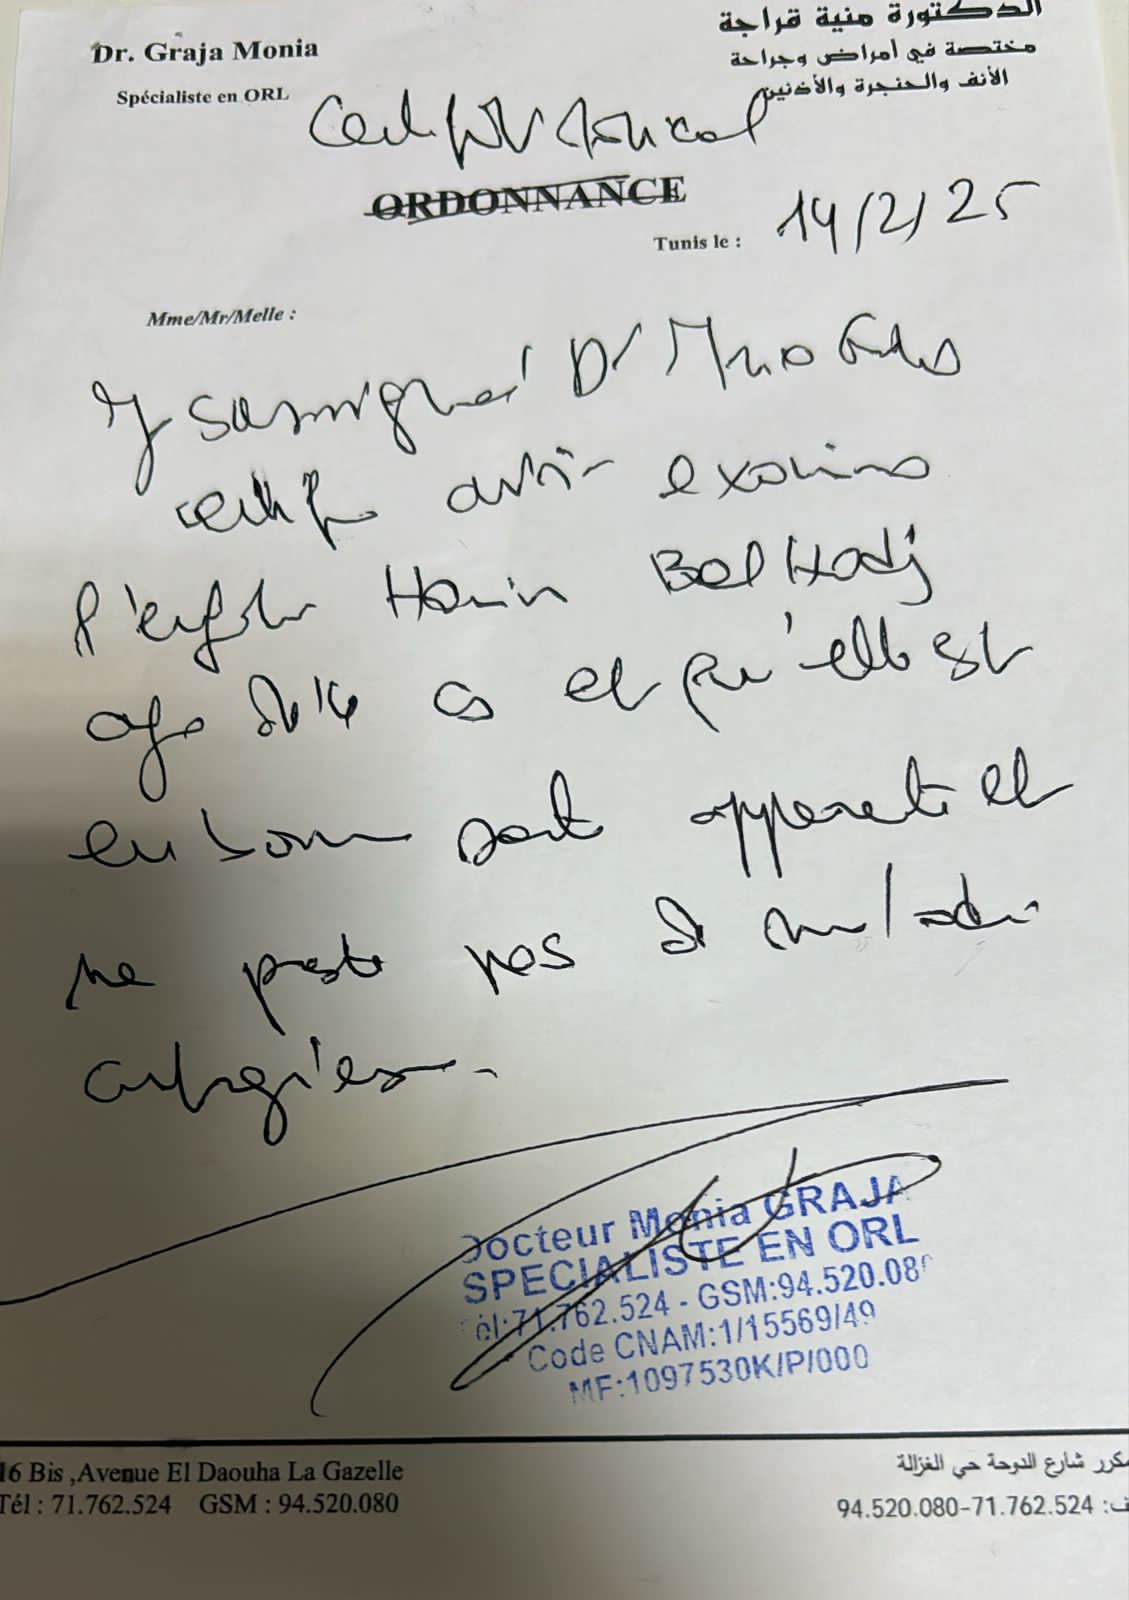 Dr. Graja Monia
Spécialiste en ORL
الدكتورة منية قراجة
مختصة في أمراض وجراحة
الأنف والحنجرة والأذنين
Certificat médical
ORDONNANCE
Tunis le : 14/2/25
Mme/Mr/Melle :
Je soussigné Dr
certifie avoir examiné
l'enfant Hanin BelHadj
age de 14 as et qu'elle est
en bonne santé apparente et
ne porte pas de maladie
contagieuse.
Docteur Monia GRAJA
SPECIALISTE EN ORL
Tél:71.762.524 - GSM:94.520.080
Code CNAM:1/15569/49
MF:1097530K/P/000
16 Bis ,Avenue El Daouha La Gazelle
Tél : 71.762.524 GSM : 94.520.080
مكرر شارع الدوحة حي الغزالة
94.520.080-71.762.524